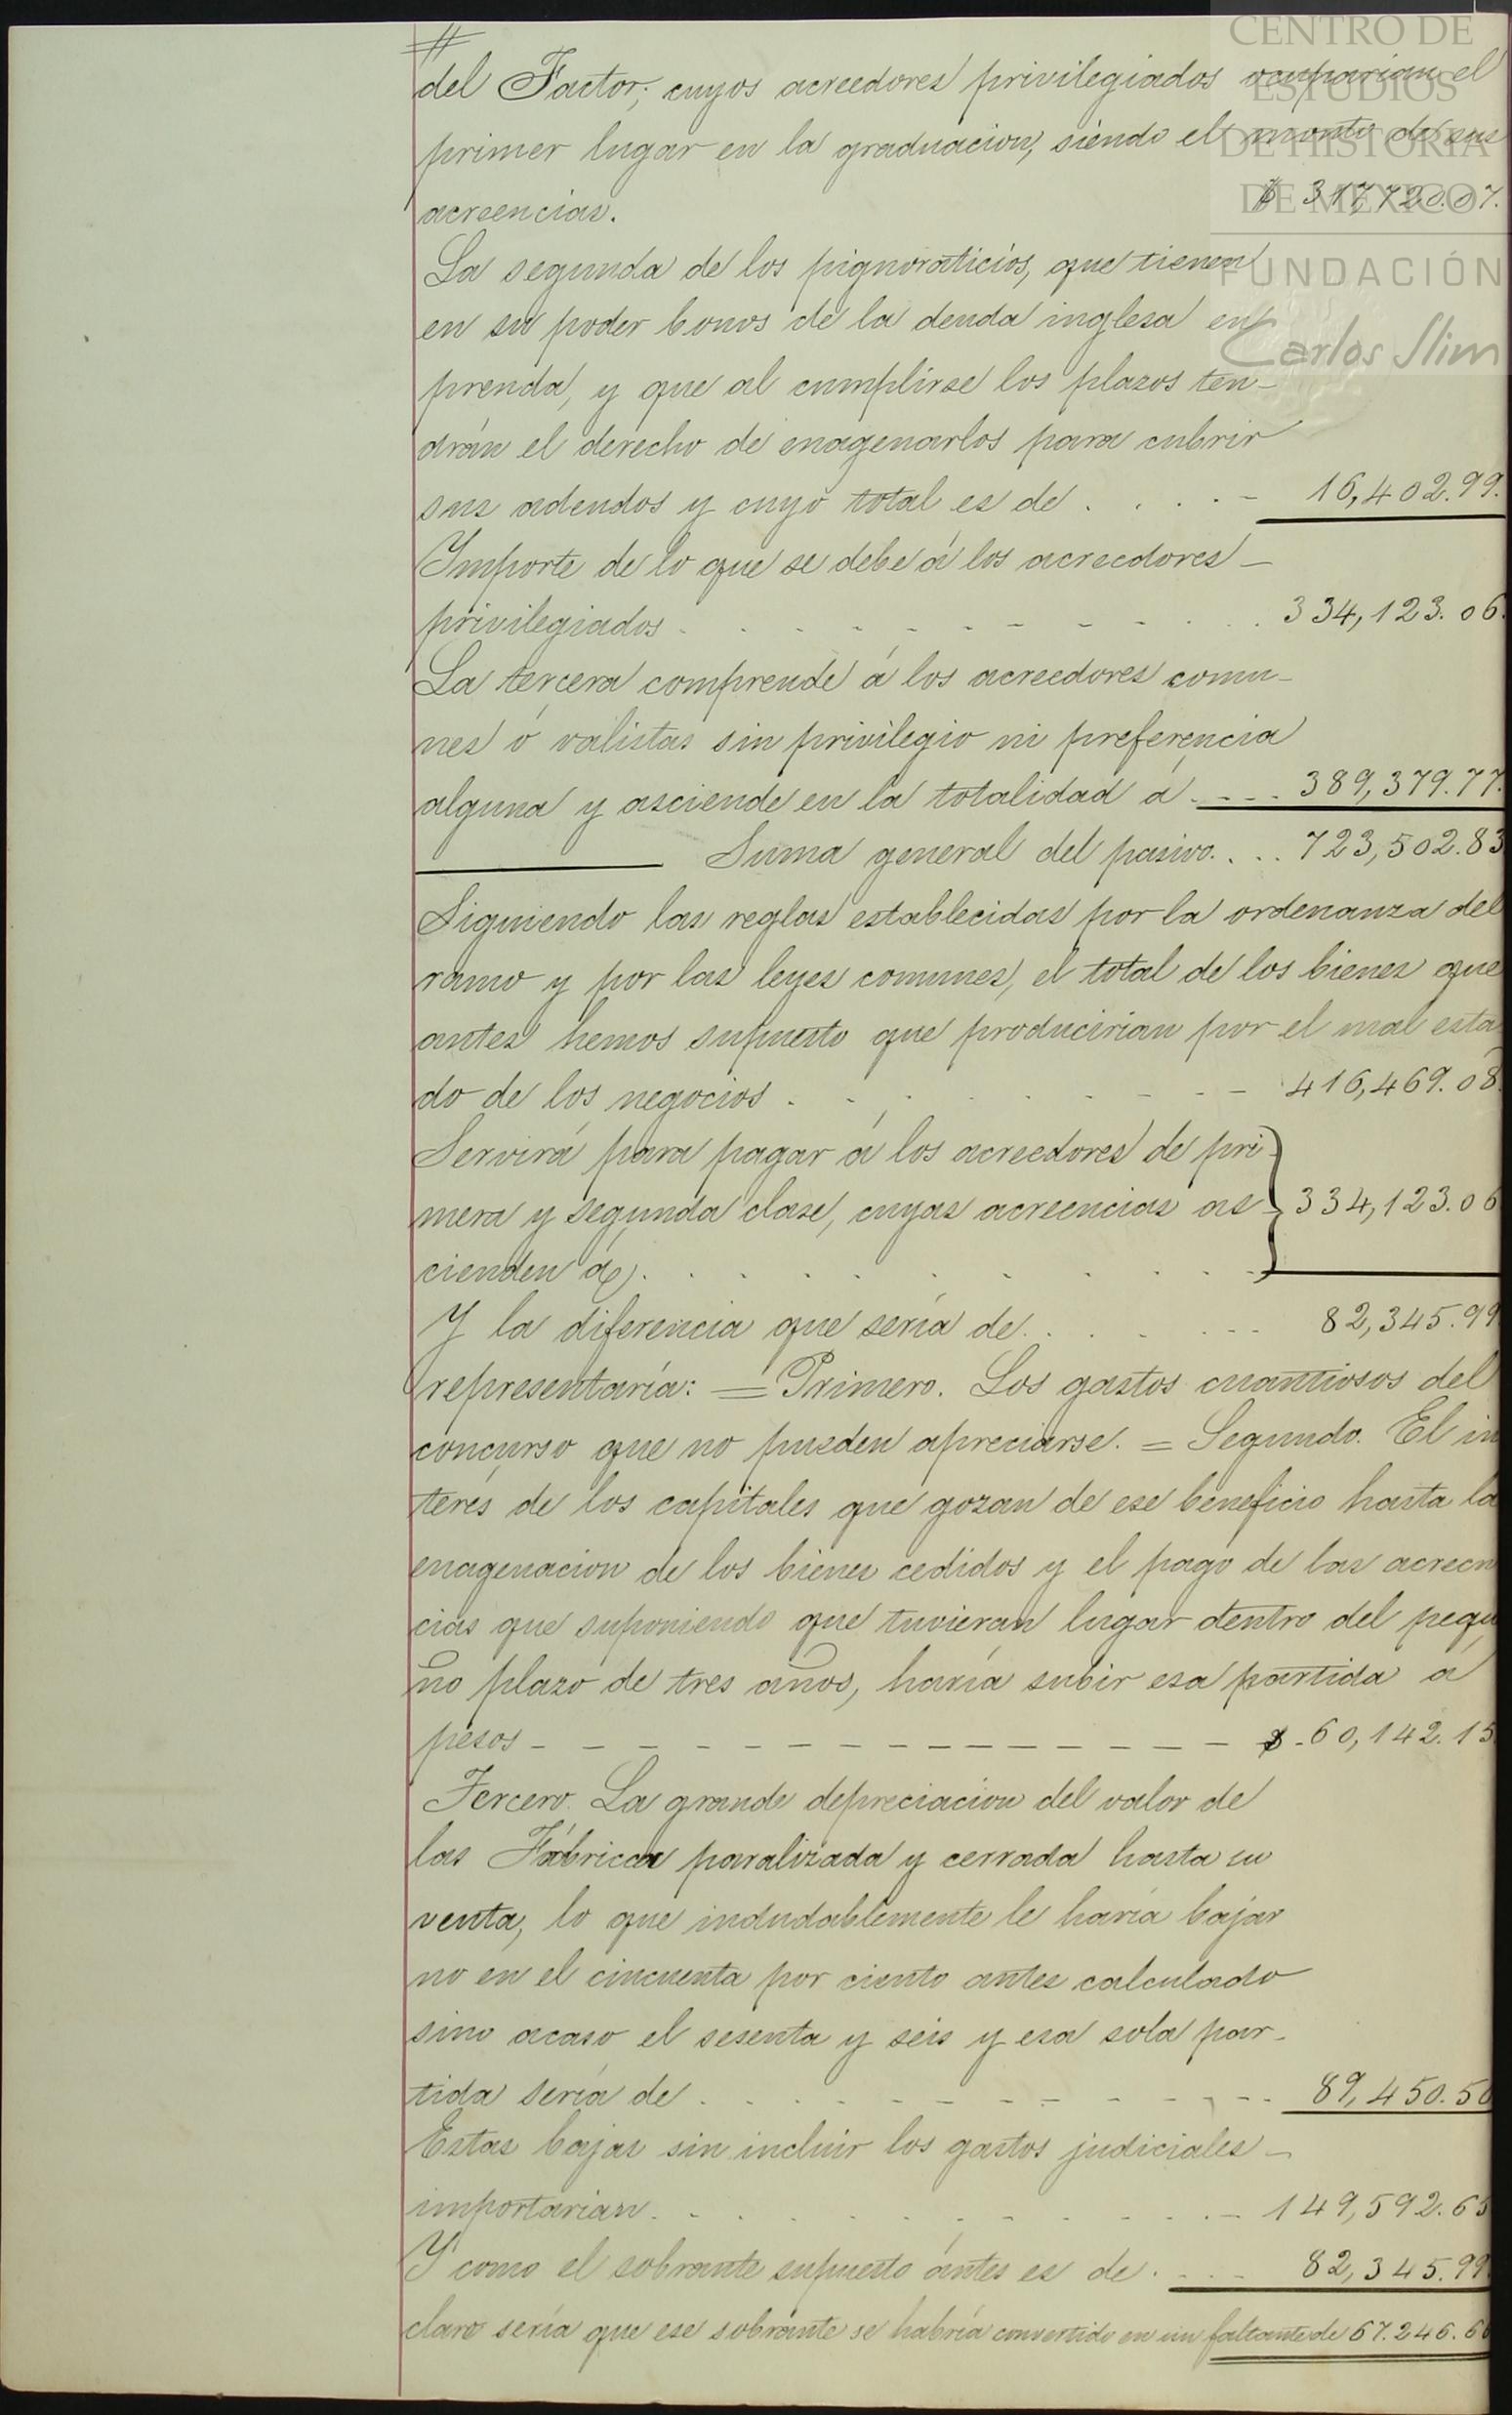 #
del Factor; cuyos acreedores privilegiados ocuparian el
primer lugar en la graduacion, siendo el monto de sus
acreencias. $ 317,720.07.
La segunda de los pignoraticios, que tienen
en su poder bonos de la deuda inglesa en
prenda, y que al cumplirse los plazos ten-
drán el derecho de enagenarlos para cubrir
sus adeudos y cuyo total es de . . . . - 16,402.99.
Importe de lo que se debe á los acreedores -
privilegiados . . . . - - - - - . . . 334,123.06.
La tercera comprende á los acreedores comu-
nes ó valistas sin privilegio ni preferencia
alguna y asciende en la totalidad á . - - . 389,379.77.
Suma general del pasivo. . . . 723,502.83
Siguiendo las reglas establecidas por la ordenanza del
ramo y por las leyes comunes, el total de los bienes que
antes hemos supuesto que producirian por el mal esta
do de los negocios . . . . . . - - - 416,469.08.
Servirá para pagar á los acreedores de pri
mera y segunda clase, cuyas acreencias as } 334,123.06
cienden á . . . . . . . . .
Y la diferencia que sería de . . . . . - - - 82,345.99
representaría: = Primero. Los gastos cuantiosos del
concurso que no pueden apreciarse. = Segundo. El in
terés de los capitales que gozan de ese beneficio hasta la
enagenacion de los bienes cedidos y el pago de las acreen
cias que suponiendo que tuvieran lugar dentro del pequ
ño plazo de tres años, haría subir esa partida á
pesos - - - - - - - - - - - - - $ - 60,142.15
Tercero. La grande depreciacion del valor de
las Fábrica paralizada y cerrada hasta su
venta, lo que indudablemente le haria bajar
no en el cincuenta por ciento antes calculado
sino acaso el sesenta y seis y esa sola par-
tida sería de . . . . - - - - - - - - . 89,450.50
Estas bajas sin incluir los gastos judiciales -
importarian . . . . . . . . . . - 149,592.65
Y como el sobrante supuesto ántes es de . - - - 82,345.99
claro sería que ese sobrante se habría convertido en un faltante de 67.246.66
CENTRO DE
ESTUDIOS
DE HISTORIA
DE MEXICO
FUNDACIÓN
Carlos Slim